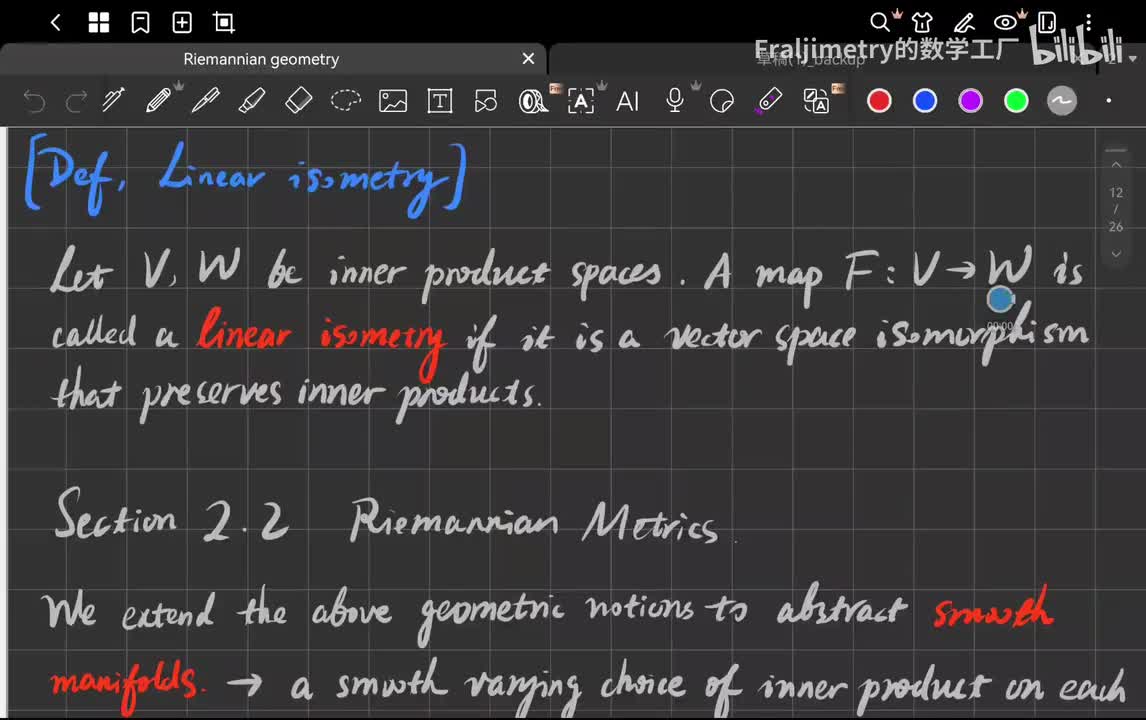 Fraljimetry的数学工厂 bilibili
Riemannian geometry
_backup
[Def, Linear isometry]
12
/
26
Let V, W be inner product spaces. A map F: V → W is
called a linear isometry if it is a vector space isomorphism
that preserves inner products.
Section 2.2 Riemannian Metrics.
We extend the above geometric notions to abstract smooth
manifolds. → a smooth varying choice of inner product on each